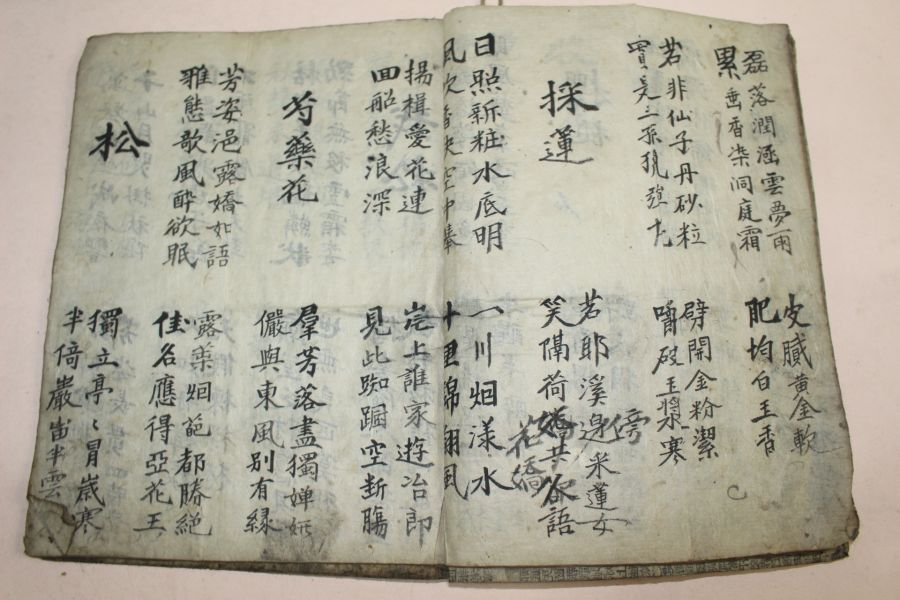 磊落潤涵雲夢雨
累垂香染洞庭霜
皮膩黃金軟
肥均白玉香
若非仙子丹砂粒
實是三孫
劈開金粉潔
嚼破玉漿寒
採蓮
若耶溪邊采蓮女
傍
笑隔荷共欲語
花嬌
日照新粧水底明
風吹香袂空中舉
一川烟漾水
十里錦翻風
揚楫愛花連
回船愁浪深
岸上誰家遊冶郎
見此踟躕空断腸
芍藥花
羣芳落盡獨嬋妍
儼與東風別有緣
芳姿浥露嬌如語
雅態歌風醉欲眠
露蘂烟葩都勝絕
佳名應得亞花王
松
獨立亭〻冒歲寒
半倚巖半雲